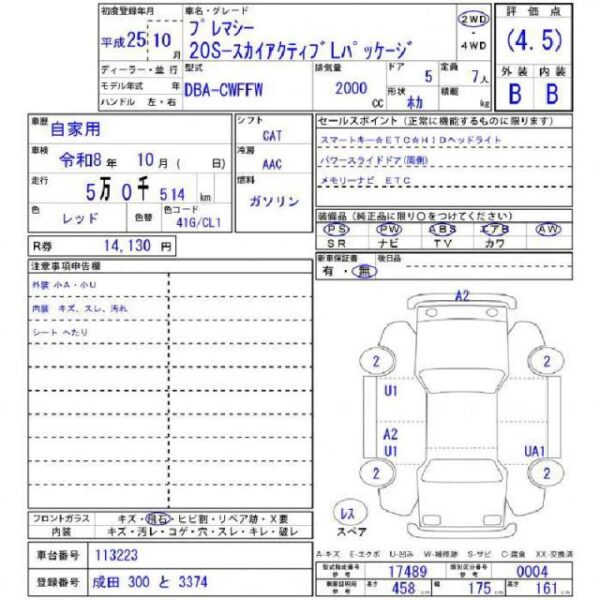 初度登録年月 車名・グレード 2WD ・ 4WD 評価点
平成25 10月 プレマシー (4.5)
20S-スカイアクティブLパッケージ
ディーラー・並行 型式 排気量 ドア 5 定員 7人 外装 内装
モデル年式 年 DBA-CWFFW 2000 CC 形状 ホカ 積載 kg B B
ハンドル 左・右
車歴 自家用 シフト CAT セールスポイント(正常に機能するものに限ります)
スマートキー☆ETC☆HIDヘッドライト
車検 令和8年 10月 ( 日) 冷房 AAC パワースライドドア(両側)
走行 5万0千514 km 燃料 ガソリン メモリーナビ ETC
色 レッド 色替 色コード 41G/CL1 装備品(純正品に限り○をつけてください)
PS PW ABS エアB AW
SR ナビ TV カワ
R券 14,130 円 新車保証書 有・無 後日品
注意事項申告欄
外装 小A・小U
内装 キズ、スレ、汚れ
シート へたり
A2
2 2
U1
A2
U1 UA1
2 2
レス
スペア
フロントガラス キズ・飛石・ヒビ割・リペア跡・X要
内装 キズ・汚レ・コゲ・穴・スレ・キレ・破レ
A-キズ E-エクボ U-凹み W-補修跡 S-サビ C-腐食 XX-交換済
車台番号 113223
型式指定番号 参考 17489 類別区分番号 参考 0004
登録番号 成田 300 と 3374
車検証明用 参考 長さ 458 幅 175 高さ 161